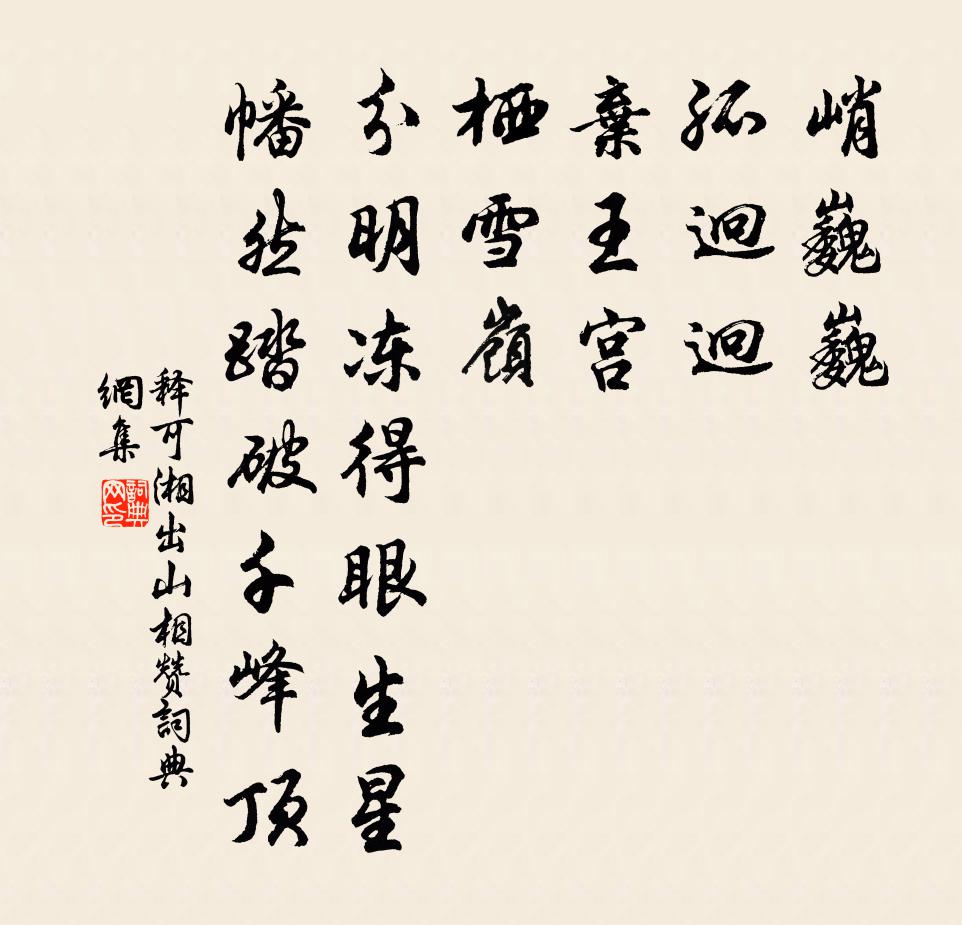 峭巍巍
孤迥迥
棄王宫
栖雪嶺
分明冻得眼生星
幡然踏破千峰顶
释可湘出山相赞詞典
網集
詞典
网印